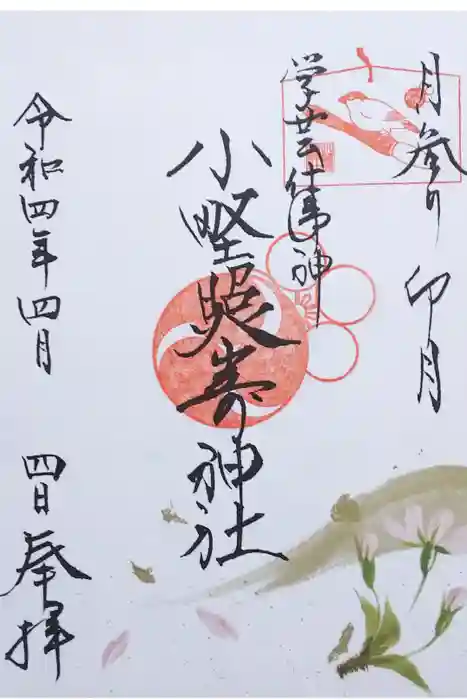 月参り 卯月
学芸仕事神
小野照崎神社
令和四年四月 四日 奉拝